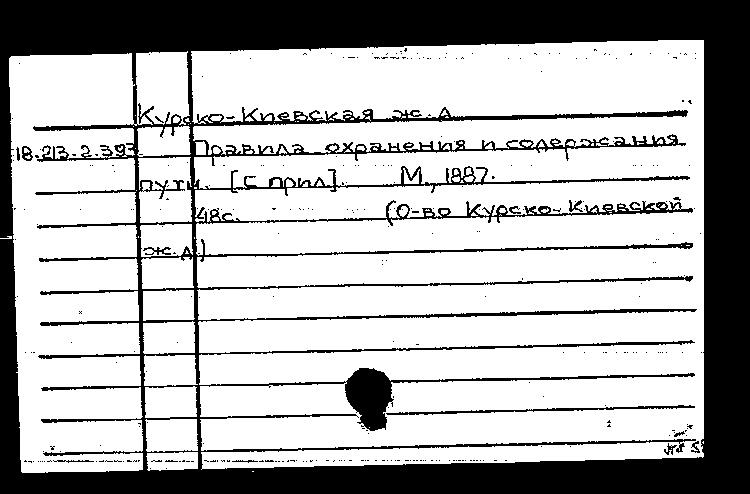 Курско-Киевская ж.д
18.213.2.393 Правила охранения и содержания
пути. [С прил]. М., 1887.
48с. (О-во Курско-Киевской
ж.д)